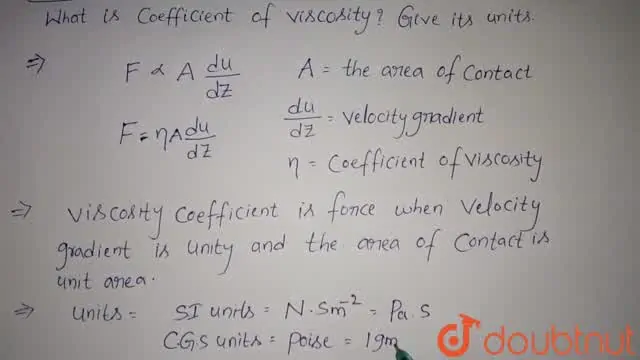 What is Coefficient of viscosity? Give its units.
⇒ F ∝ A du/dz A = the area of Contact
F = ηA du/dz du/dz = velocity gradient
η = Coefficient of viscosity
⇒ viscosity Coefficient is force when velocity
gradient is unity and the area of Contact is
unit area.
⇒ units = SI units = N.Sm⁻² = Pa.S
CGS units = poise = 1gm
doubtnut